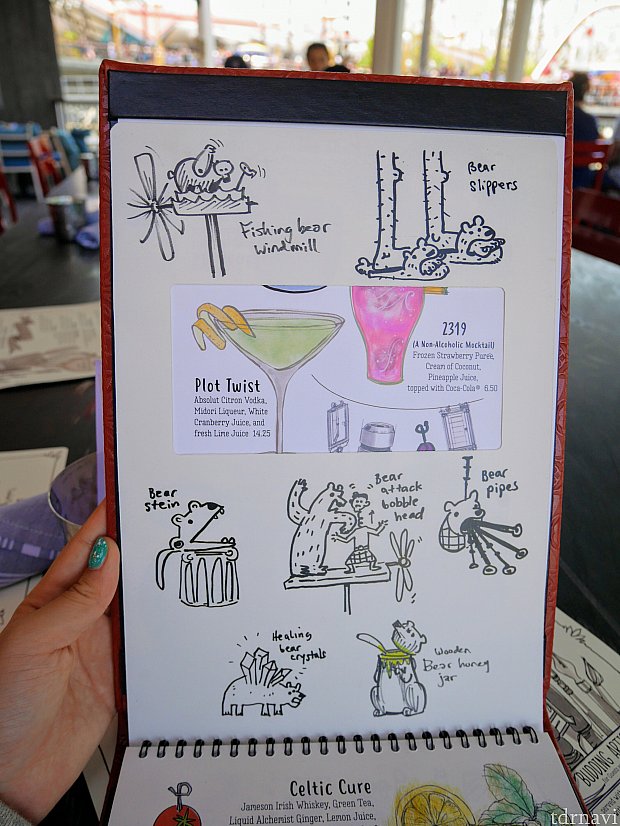 Fishing bear
windmill
Bear
slippers
2319
(A Non-Alcoholic Mocktail)
Frozen Strawberry Puree,
Cream of Coconut,
Pineapple Juice,
topped with Coca-Cola® 6.50
Plot Twist
Absolut Citron Vodka,
Midori Liqueur, White
Cranberry Juice, and
fresh Lime Juice 14.25
Bear
stein
Bear
attack
bobble
head
Bear
pipes
Healing
bear
crystals
Wooden
Bear honey
jar
Celtic Cure
Jameson Irish Whiskey, Green Tea,
Liquid Alchemist Ginger, Lemon Juice,
tdrnavi